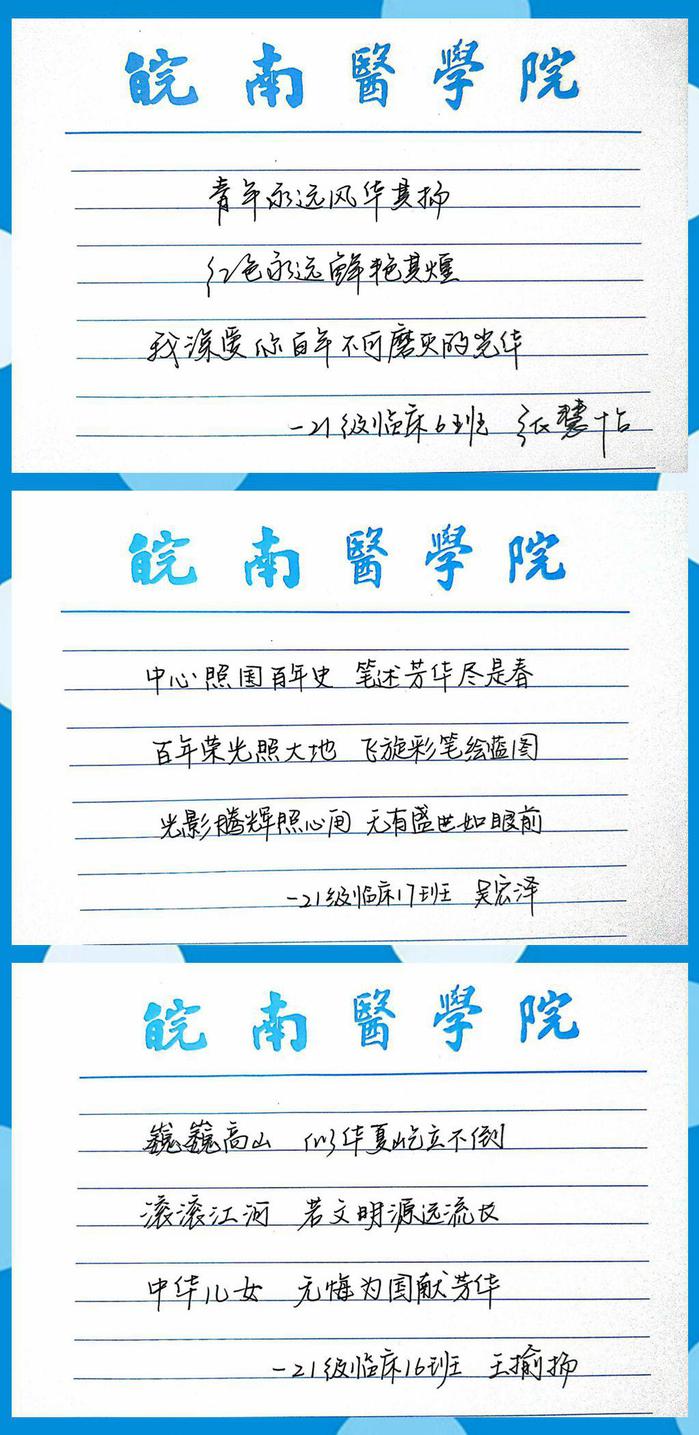 皖南醫學院
青年永远风华其扬
红色永远鲜艳其煌
我深爱你百年不可磨灭的光华
-21级临床6班 张慧怡
皖南醫學院
中心照国百年史 笔述芳华尽是春
百年荣光照大地 飞旋彩笔绘蓝图
光影腾辉照心间 无有盛世如眼前
-21级临床17班 吴宏泽
皖南醫學院
巍巍高山 似华夏屹立不倒
滚滚江河 若文明源远流长
中华儿女 无悔为国献芳华
-21级临床16班 王揄扬